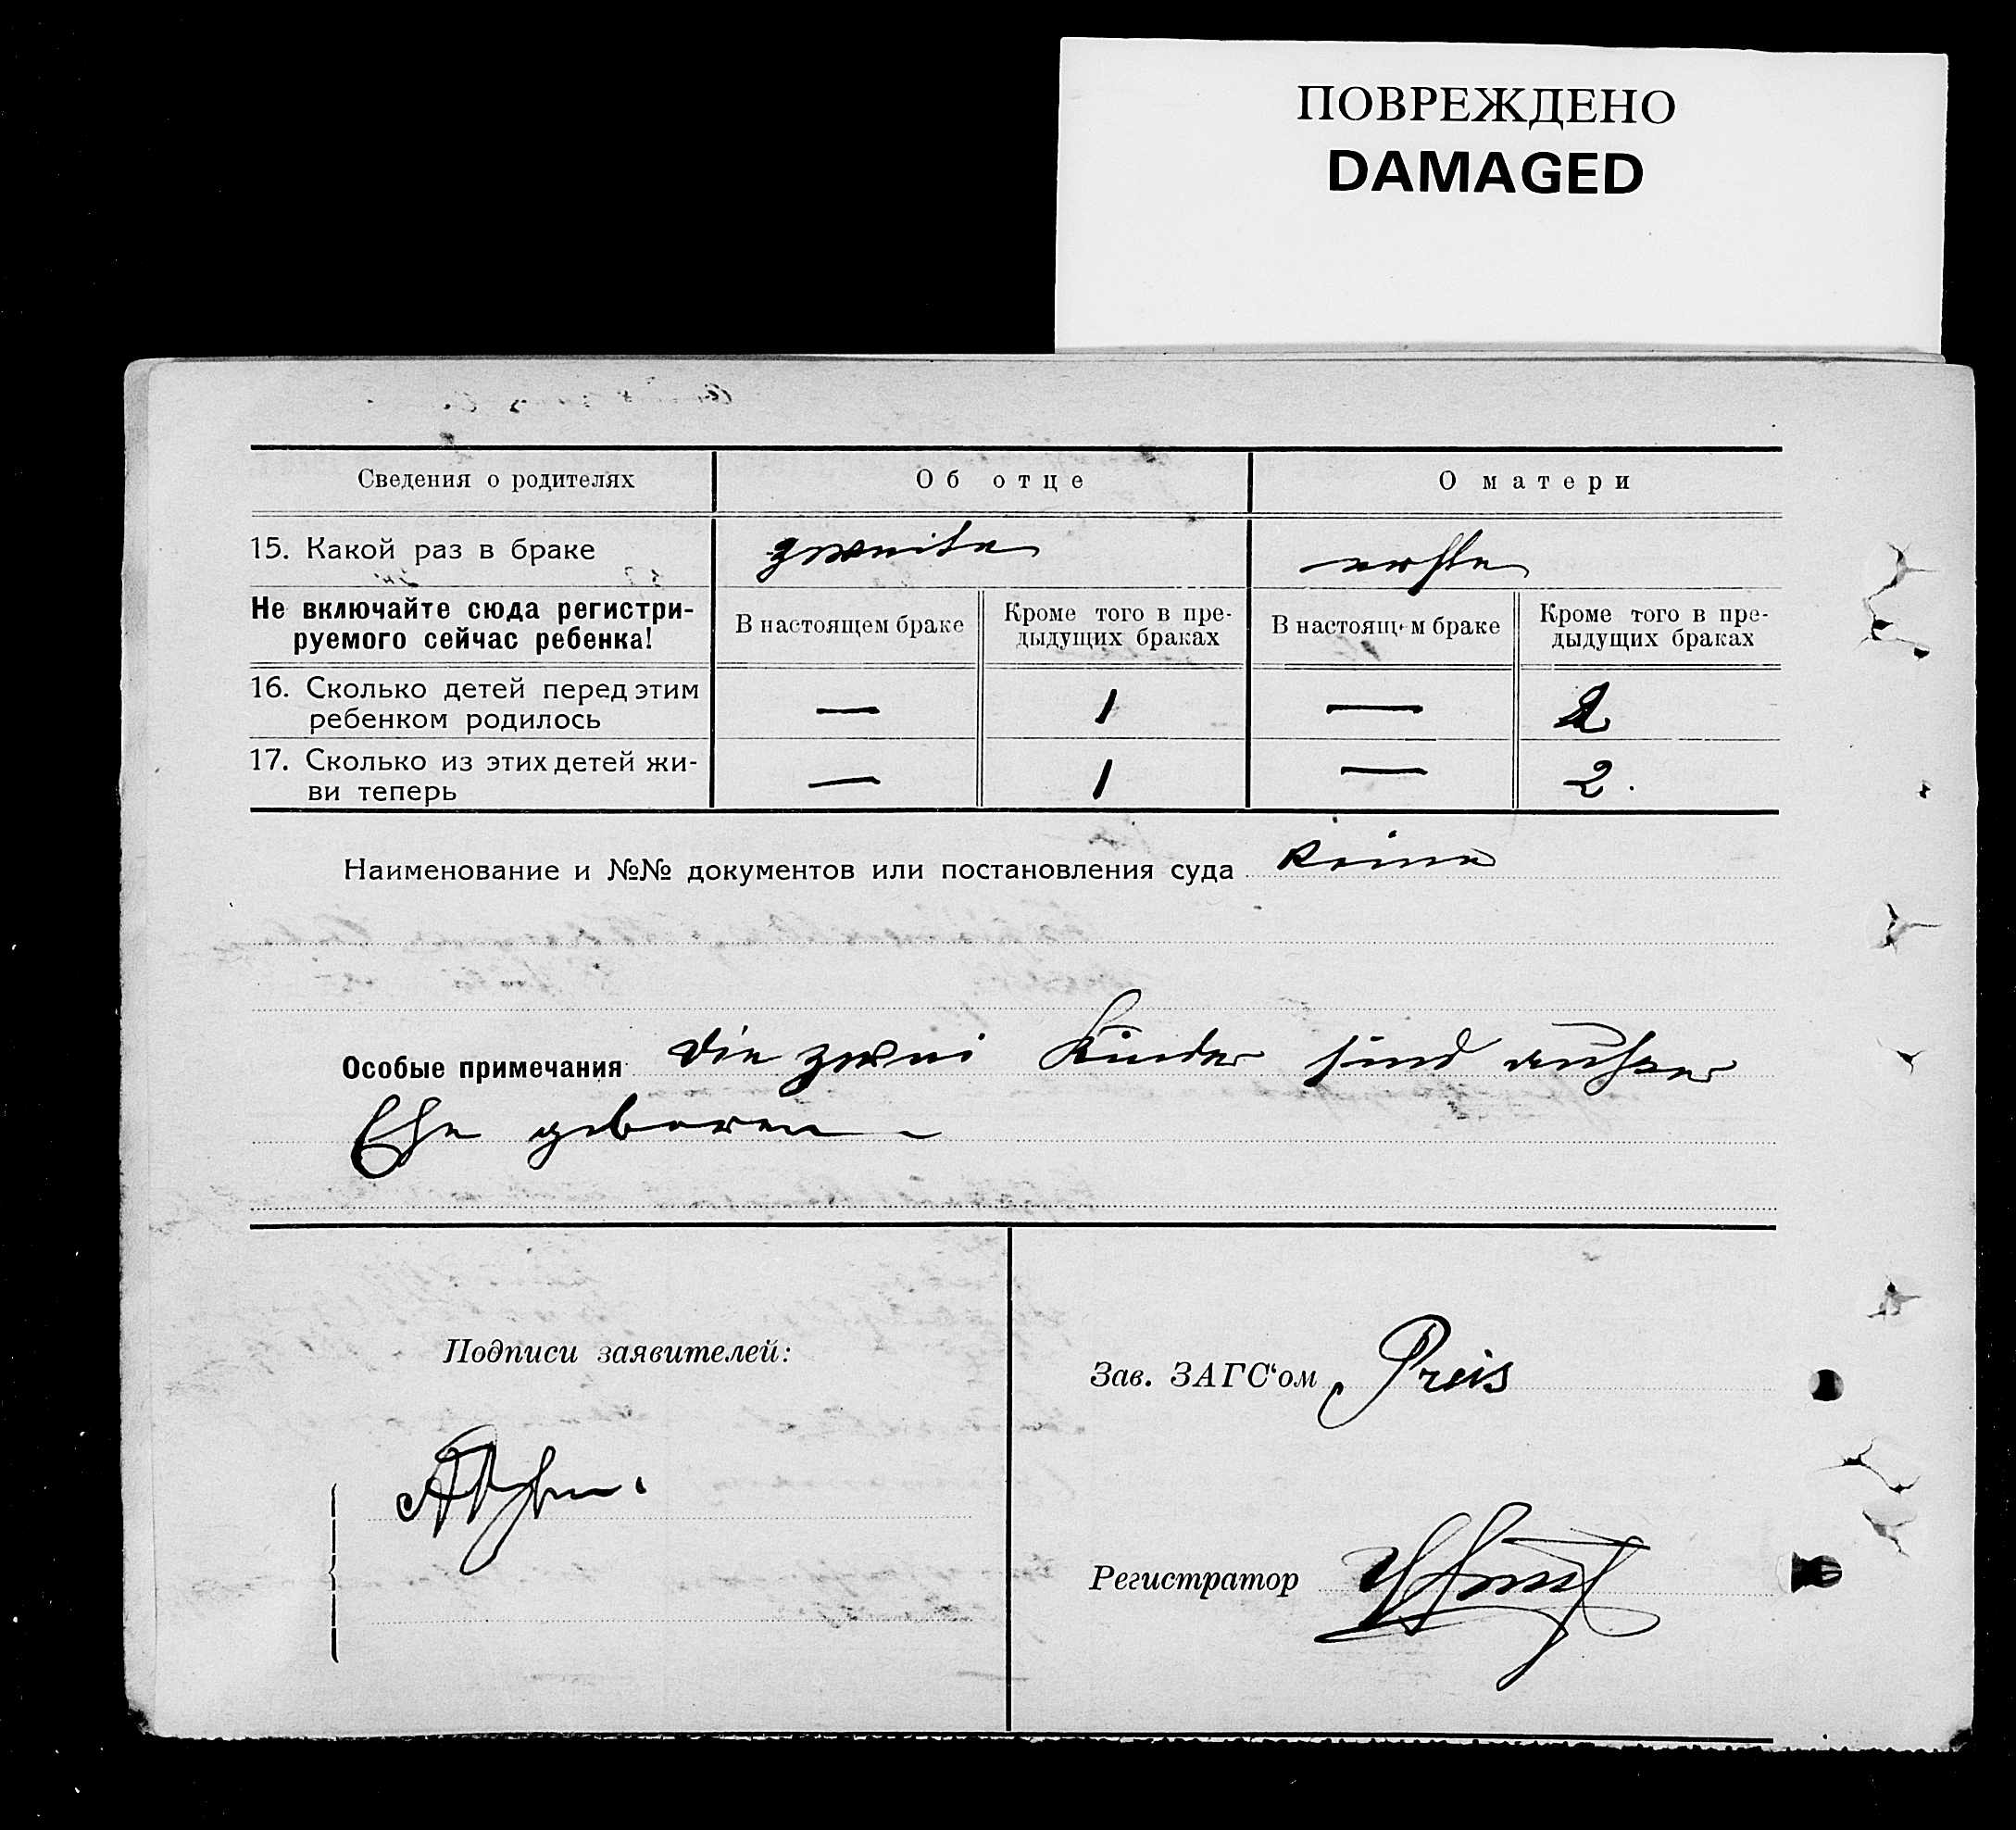 ПОВРЕЖДЕНО
DAMAGED
Сведения о родителях
Об отце
О матери
15. Какой раз в браке
zweite
erste
Не включайте сюда регистри-
руемого сейчас ребенка!
В настоящем браке
Кроме того в пре-
дыдущих браках
В настоящем браке
Кроме того в пре-
дыдущих браках
16. Сколько детей перед этим
ребенком родилось
—
1
—
2
17. Сколько из этих детей жи-
ви теперь
—
1
—
2.
Наименование и №№ документов или постановления суда keine
Особые примечания die zwei Kinder sind ausser
Ehe geboren
Подписи заявителей:
Зав. ЗАГС‘ом Preis
Регистратор